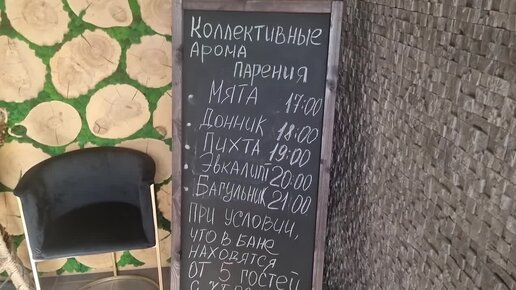 Коллективные
арома
парения
Мята 17:00
Донник 18:00
Пихта 19:00
Эвкалипт 20:00
Багульник 21:00
При условии,
что в бане
находятся
от 5 гостей